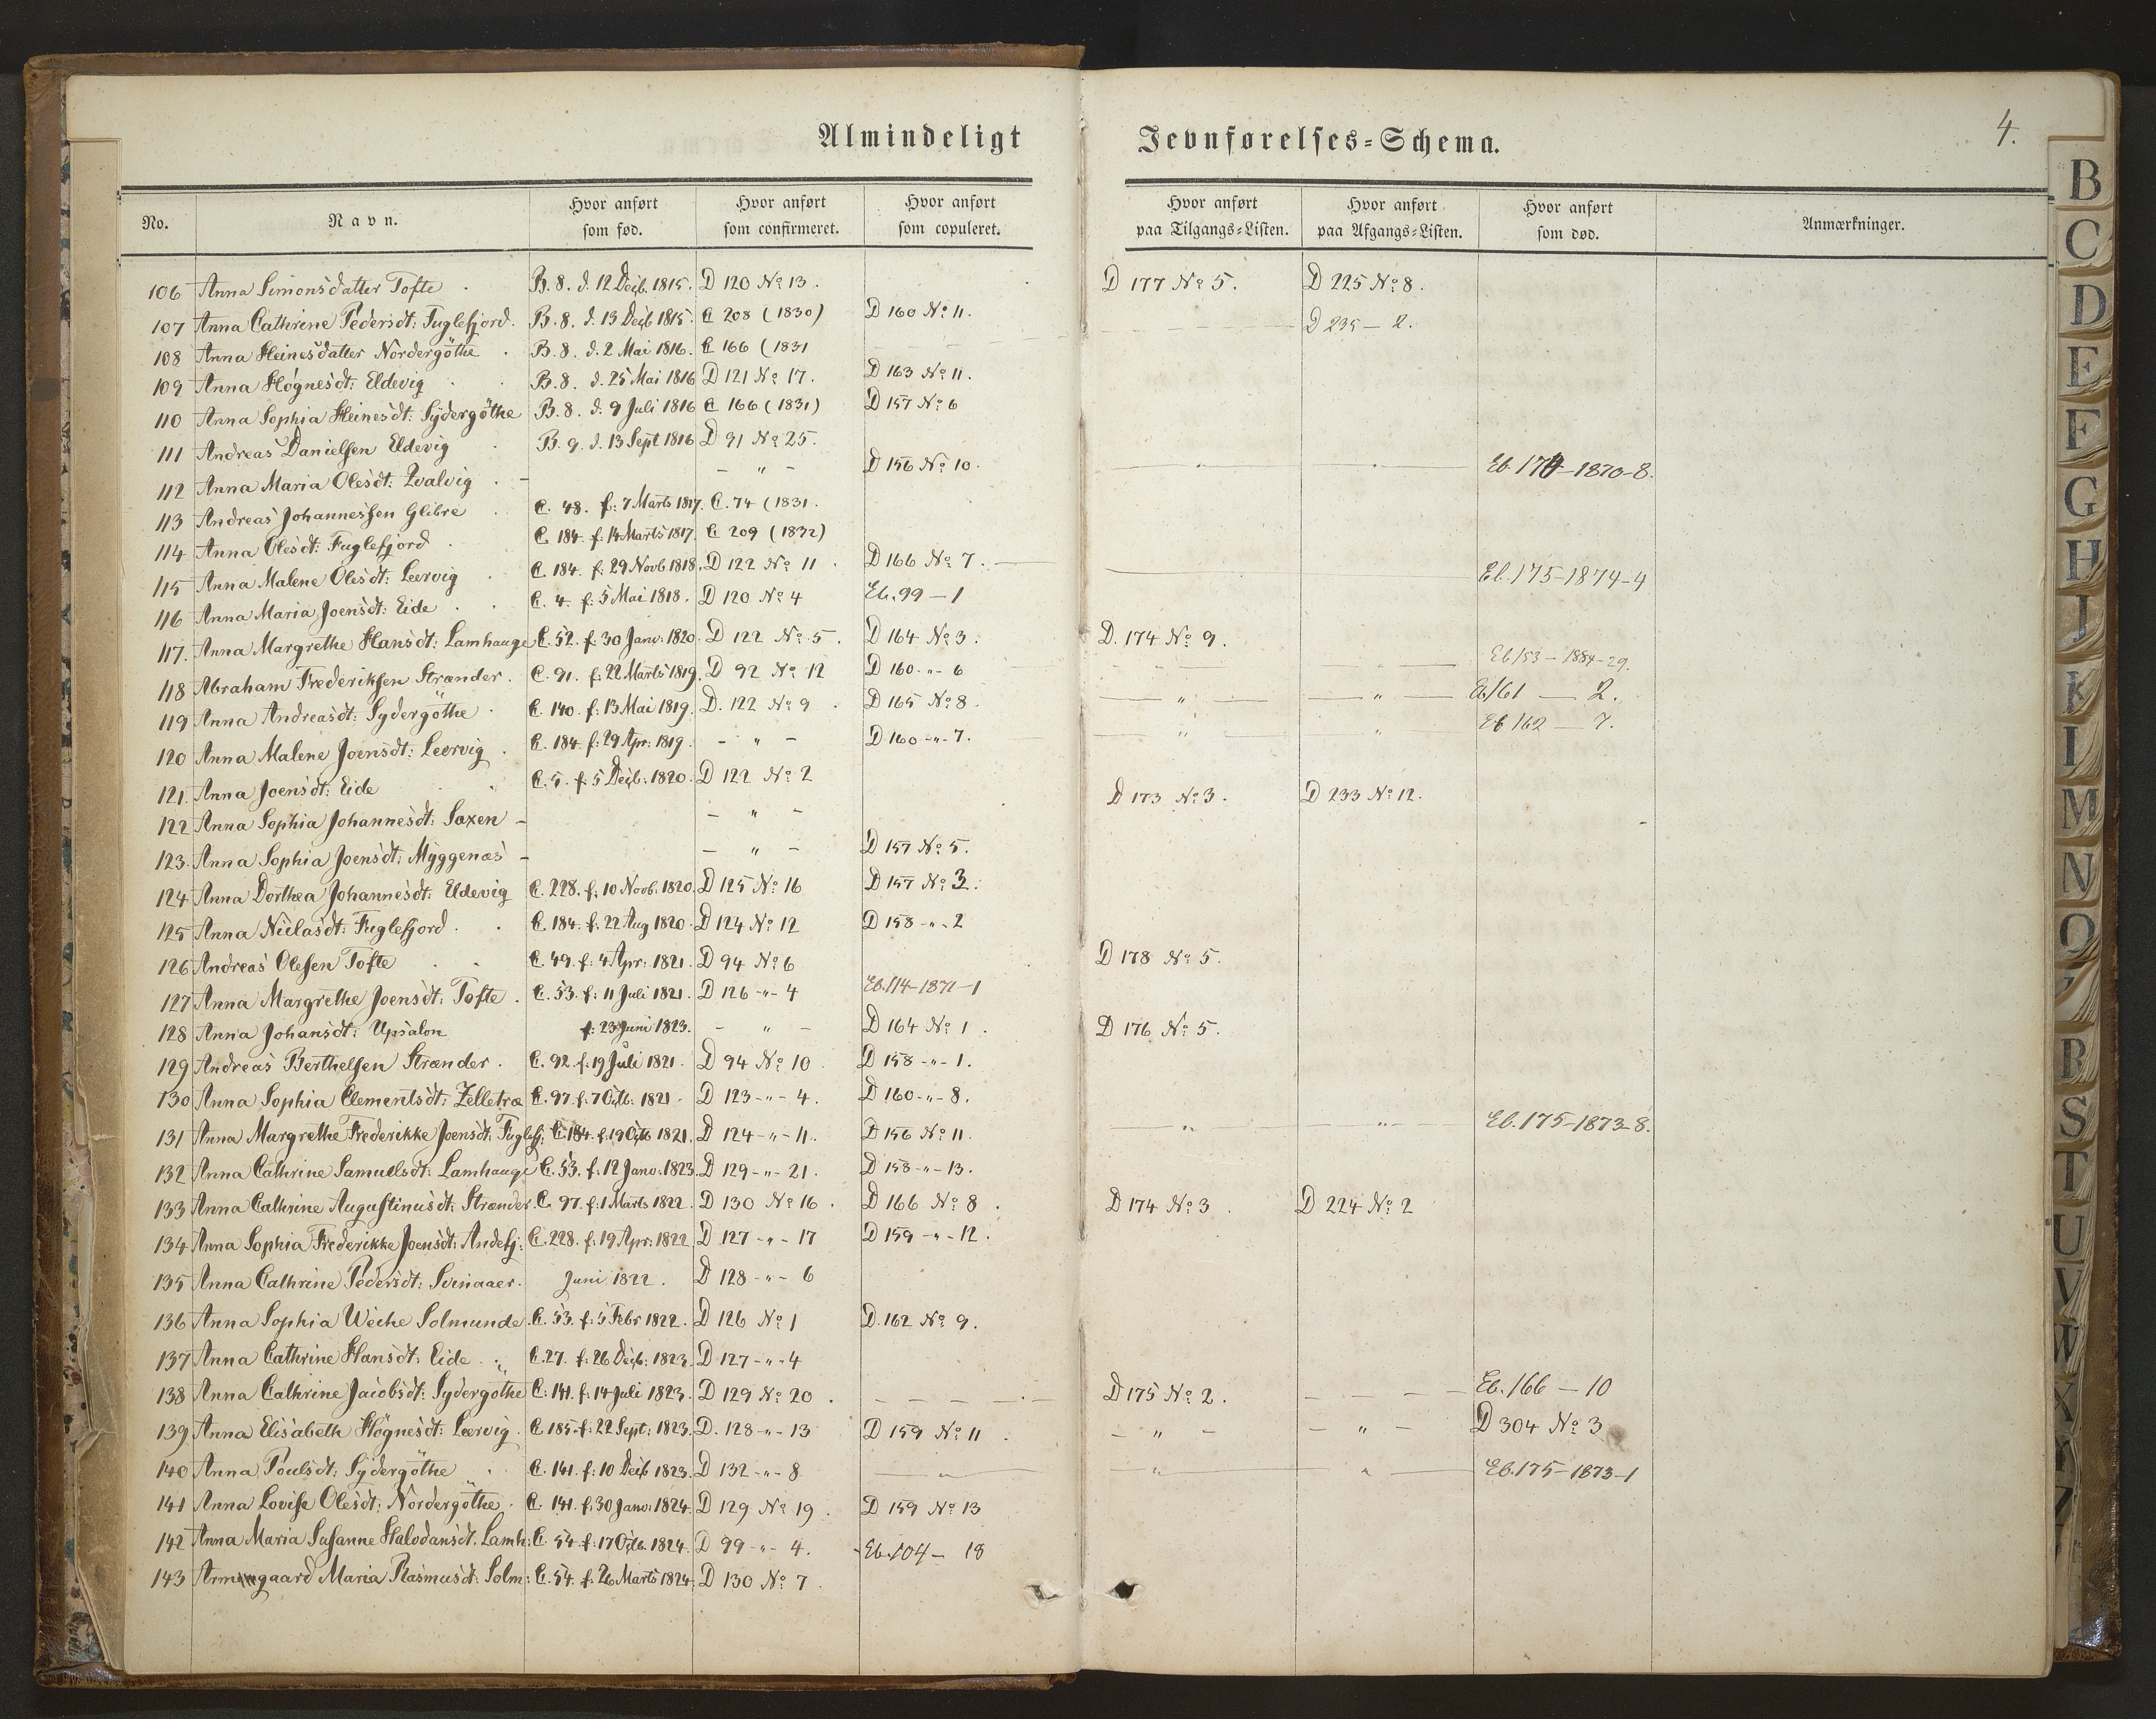 Almindeligt Jevnførelses=Schema. 4.
No. Navn. Hvor anført som fød. Hvor anført som confirmeret. Hvor anført som copuleret. Hvor anført paa Tilgangs=Listen. Hvor anført paa Afgangs=Listen. Hvor anført som død. Anmærkninger.
106 Anna Simonsdatter Tofte . B. 8. d. 12 Decb. 1815. D 120 No 13. D 177 No 5. D 225 No 8.
107 Anna Cathrine Pedersdt: Fuglefjord. B. 8. d. 13 Decb 1815. C 208 (1830) D 160 No 11. D 235 — 2.
108 Anna Heinesdatter Nordergöthe . B. 8. d. 2 Mai 1816. C 166 (1831
109 Anna Høgnesdt: Eldevig . B. 8. d. 25 Mai 1816 D 121 No 17. D 163 No 11.
110 Anna Sophia Heinesdt: Sydergöthe B. 8. d. 9 Juli 1816 C 166 (1831) D 157 No 6
111 Andreas Danielsen Eldevig . B. 9. d. 13 Sept 1816 D 91 No 25.
112 Anna Maria Olesdt: Qvalvig . – – " – D 156 No 10. Eb. 174–1870–8.
113 Andreas Johannessen Glibre . C. 48. f: 7 Marts 1817. C. 74 (1831.
114 Anna Olesdt: Fuglefjord . C. 184. f. 14 Marts 1817. C 209 (1832)
115 Anna Malene Olesdt: Leervig . C. 184. f: 29 Novb 1818. D 122 No 11 . D 166 No 7. Eb. 175–1874–4
116 Anna Maria Joensdt: Eide . . C. 4. f: 5 Mai 1818. D 120 No 4 Eb. 99 – 1
117. Anna Margrethe Hansdt: Lamhauge C. 52. f: 30 Janv: 1820. D 122 No 5. D 164 No 3. D. 174 No 9.
118 Abraham Frederiksen Strænder . C. 91. f: 22 Marts 1819. D 92 No 12 D 160 - " - 6 " Eb 153 – 1884–29.
119 Anna Andreasdt: Sydergöthe . C. 140. f: 13 Mai 1819. D. 122 No 9 . D 165 No 8. " " Eb 161 — 2.
120 Anna Malene Joensdt: Leervig . C. 184. f: 29 Apr: 1819. – " – D 160 - " - 7. " " Eb 162 — 7.
121. Anna Joensdt: Eide . C. 5. f: 5 Decb: 1820. D 122 No 2 D 173 No 3. D 233 No 12.
122 Anna Sophia Johannesdt: Saxen – – " –
123. Anna Sophia Joensdt: Myggenæs – – " – D 157 No 5.
124 Anna Dorthea Johannesdt: Eldevig C. 228. f. 10 Novb. 1820. D 125 No 16 D 157 No 3.
125 Anna Nielasdt: Fuglefjord . . C. 184. f: 22 Aug 1820. D 124 No 12 D 158 - " - 2
126 Andreas Olesen Tofte . . C. 49. f: 4 Apr: 1821. D 94 No 6 D 178 No 5.
127 Anna Margrethe Joensdt: Tofte . C. 53. f: 11 Juli 1821. D 126 - " - 4 Eb. 114–1871–1
128 Anna Johansdt: Upsalon f: 23 Juni 1823. – " – D 164 No 1 . D 176 No 5.
129 Andreas Berthelsen Strænder . C. 92. f. 19 Juli 1821. D 94 No 10 . D 158 - " - 1.
130 Anna Sophia Clementsdt: Zelletræ C. 97. f: 7 Octb: 1821. D 123 - " - 4. D 160 - " - 8.
131 Anna Margrethe Frederikke Joensdt: Fuglefj: C 184. f: 19 Octb 1821. D 124 - " - 11. D 156 No 11. " " Eb. 175–1873–8.
132 Anna Cathrine Samuelsdt: Lamhauge C. 53. f: 12 Janv: 1823. D 129 - " - 21. D 158 - " - 13.
133 Anna Cathrine Augustinusdt: Strænder. C. 97. f: 1 Marts 1822. D 130 No 16 . D 166 No 8 . D 174 No 3 . D 224 No 2
134 Anna Sophia Frederikke Joensdt: Andefj: C. 228. f: 19 Apr: 1822. D 127 - " - 17 D 159 - " - 12.
135 Anna Cathrine Pedersdt: Svinaaer. Juni 1822. D 128 - " - 6
136 Anna Sophia Weihe Solmunde. C. 53. f: 5 Febr 1822. D 126 No 1 D. 162 No 9.
137 Anna Cathrine Hansdt: Eide . C. 27. f: 26 Decb: 1823. D 127 - " - 4
138 Anna Cathrine Jacobsdt: Sydergøthe C: 141. f: 14 Juli 1823. D 129 No 20 . D 175 No 2. Eb. 166 – 10
139 Anna Elisabeth Høgnesdt: Leervig. C 185. f: 22 Sept: 1823. D. 128 - " - 13 D 159 No 11 . – " – – " – D 304 No 3
140 Anna Poulsdt: Sydergöthe . C. 141. f: 10 Decb 1823. D 132 - " - 8 " " " Eb. 175–1873–1
141 Anna Lovise Olesdt: Nordergöthe . C. 141. f: 30 Janv: 1824. D 129 No 19 . D 159 No 13
142 Anna Maria Susanne Halvdansdt. Lamh: C. 54. f: 17 Octb. 1824. D 99 - " - 4. Eb. 104 – 18
143 Armgaard Maria Rasmusdt: Solm: C. 54. f: 26 Marts 1824. D 130 No 7.
B
C
D
E
F
G
H
J
K
I
M
N
O
R
S
T
U
V
W
X
Y
Z